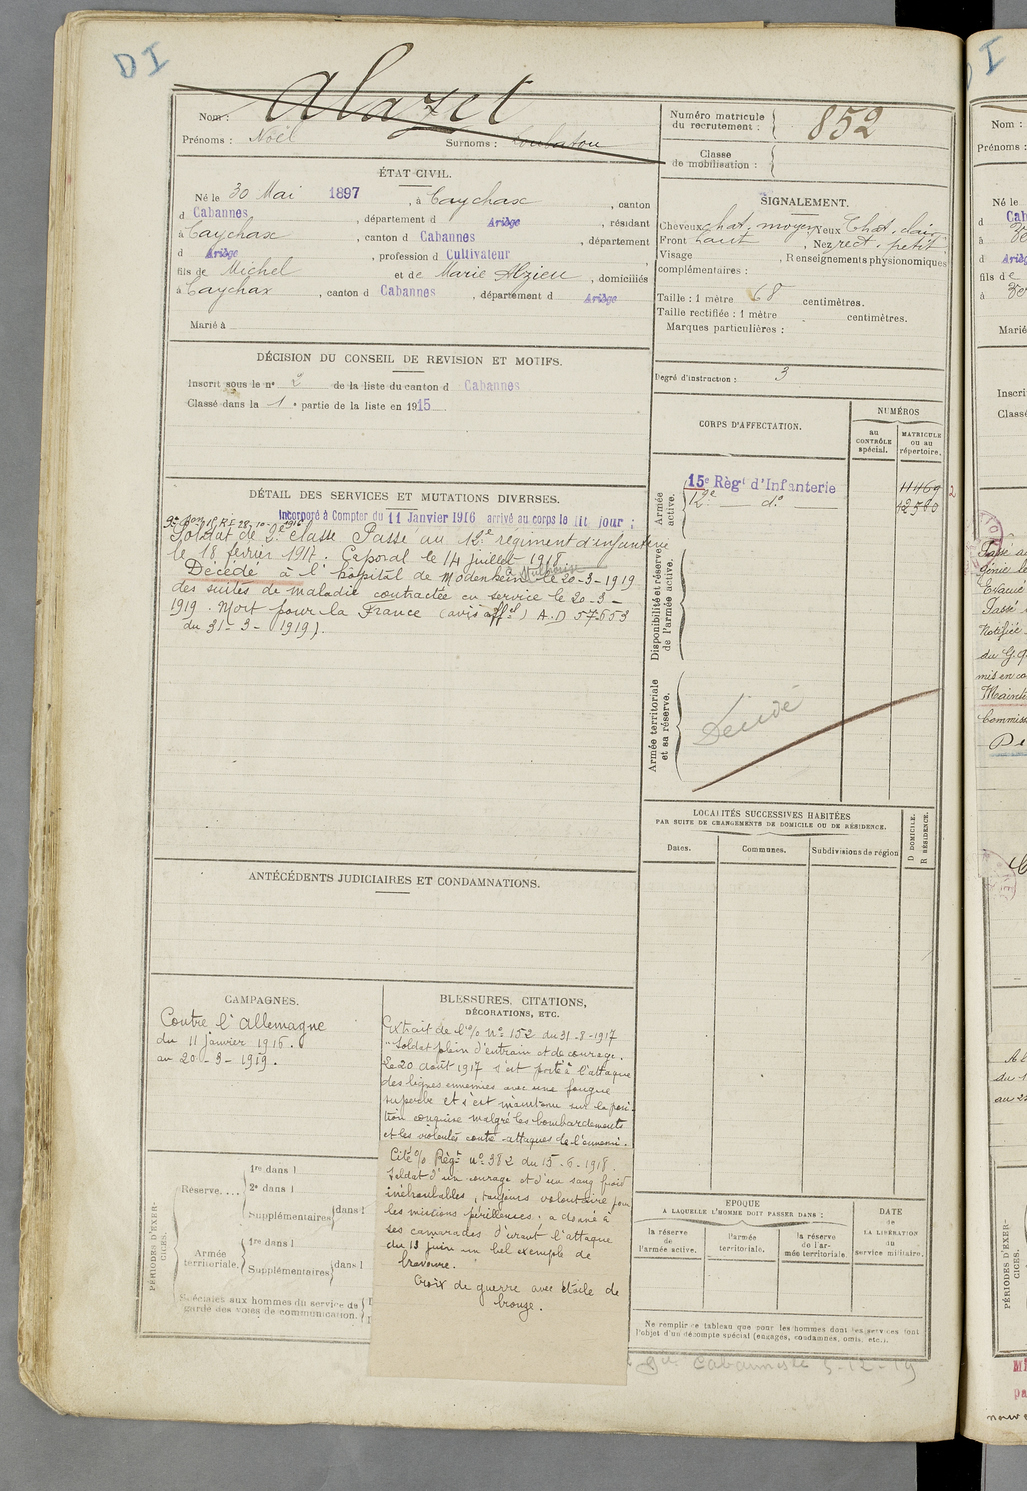 DI
Nom : Alazet
Prénoms : Noël Surnoms :
Numéro matricule du recrutement : 852
Classe de mobilisation :
ÉTAT CIVIL.
Né le 30 Mai 1897, à Caychax, canton
d Cabannes, département d Ariège, résidant
à Caychax, canton d Cabannes, département
d Ariège, profession d Cultivateur
fils de Michel et de Marie, domiciliés
à Caychax, canton d Cabannes, département d Ariège
Marié à
SIGNALEMENT.
Cheveux chat. moyen Yeux Chat. clair
Front haut, Nez rect. petit
Visage, Renseignements physionomiques
complémentaires :
Taille : 1 mètre 68 centimètres.
Taille rectifiée : 1 mètre centimètres.
Marques particulières :
Degré d'instruction : 3
DÉCISION DU CONSEIL DE REVISION ET MOTIFS.
Inscrit sous le nº 2 de la liste du canton d Cabannes
Classé dans la 1e partie de la liste en 1915
DÉTAIL DES SERVICES ET MUTATIONS DIVERSES.
Incorporé à Compter du 11 Janvier 1916 arrivé au corps le dit jour ;
Soldat de 2e classe Passé au 12e régiment d'infanterie
le 18 février 1917. Caporal le 14 juillet 1918
Décédé à l'hôpital de Modenheim Mulhouse le 20-3-1919
des suites de maladie contractée en service le 20-3-
1919. Mort pour la France (avis offel) A.D 57653
du 31-3-1919).
CORPS D'AFFECTATION.
NUMÉROS
au CONTRÔLE spécial.
MATRICULE ou au répertoire.
Armée active.
15e Régt d'Infanterie 11469
12e do 12580
Disponibilité et réserve de l'armée active.
Armée territoriale et sa réserve.
Décédé
LOCALITÉS SUCCESSIVES HABITÉES
PAR SUITE DE CHANGEMENTS DE DOMICILE OU DE RÉSIDENCE.
Dates.
Communes.
Subdivisions de région
D DOMICILE.
R RÉSIDENCE.
ANTÉCÉDENTS JUDICIAIRES ET CONDAMNATIONS.
CAMPAGNES.
Contre l'Allemagne
du 11 janvier 1916.
au 20-3-1919.
BLESSURES, CITATIONS,
DÉCORATIONS, ETC.
Extrait de l'o/o No 152 du 31-8-1917
"Soldat plein d'entrain et de courage.
Le 20 août 1917 s'est porté à l'attaque
des lignes ennemies avec une fougue
superbe et s'est maintenu sur la posi-
tion conquise malgré les bombardements
et les violentes contre-attaques de l'ennemi.
Cité o/o Régt no 382 du 15-6-1918.
Soldat d'un courage et d'un sang froid
inébranlables, toujours volontaire pour
les missions périlleuses. a donné à
ses camarades d'avant l'attaque
du 13 juin un bel exemple de
bravoure.
Croix de guerre avec étoile de
bronze.
PÉRIODES D'EXER-
CICES.
Réserve....
1re dans l
2e dans l
Supplémentaires dans l
Armée territoriale.
1re dans l
Supplémentaires dans l
Spéciales aux hommes du service de
garde des voies de communication.
EPOQUE
A LAQUELLE L'HOMME DOIT PASSER DANS :
la réserve de l'armée active.
l'armée territoriale.
la réserve de l'armée territoriale
DATE
de
LA LIBÉRATION
du
service militaire.
Ne remplir ce tableau que pour les hommes dont les services font
l'objet d'un décompte spécial (engagés, condamnés, omis, etc.).